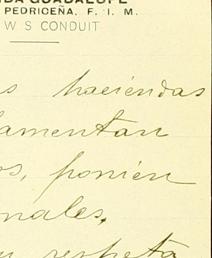 DA GUADALUPE
PEDRICEÑA, F. I. M.
W S CONDUIT
s haciendas
lamentan
os, ponién
nales,
u respeta